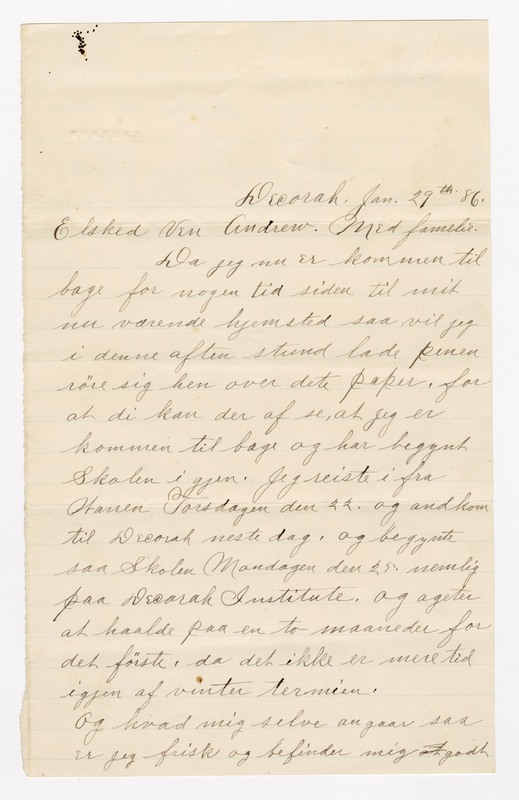 Decorah. Jan. 29th. 86.
Elsked Ven Andrew. Med familie.
Da jeg nu er kommen til
bage for nogen tid siden til mit
nu værende hjemsted saa vil jeg
i denne aften stund lade penen
röre sig hen over dete paper, for
at di kan der af se, at jeg er
kommen til bage og har begynt
Skolen igjen. Jeg reiste i fra
Warren Torsdagen den 22. og andkom
til Decorah neste dag. og begynte
saa Skolen Mandagen den 25. nemlig
paa Decorah Institute. og ageter
at haalde paa en to maaneder for
det förste, da det ikke er mere tid
igjen af vinter termien.
og hvad mig selve angaar saa
er jeg frisk og befinder mig at godt